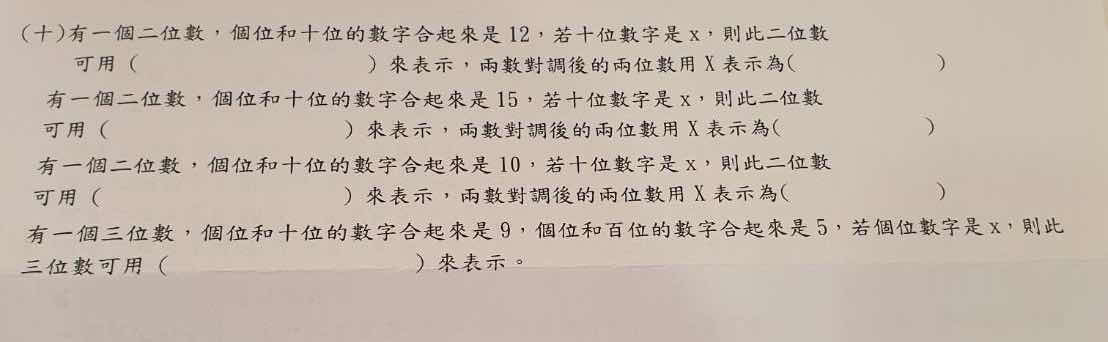 (十)有一個二位數，個位和十位的數字合起來是12，若十位數字是x，則此二位數
可用( )來表示，兩數對調後的兩位數用X表示為( )
有一個二位數，個位和十位的數字合起來是15，若十位數字是x，則此二位數
可用( )來表示，兩數對調後的兩位數用X表示為( )
有一個二位數，個位和十位的數字合起來是10，若十位數字是x，則此二位數
可用( )來表示，兩數對調後的兩位數用X表示為( )
有一個三位數，個位和十位的數字合起來是9，個位和百位的數字合起來是5，若個位數字是x，則此
三位數可用( )來表示。